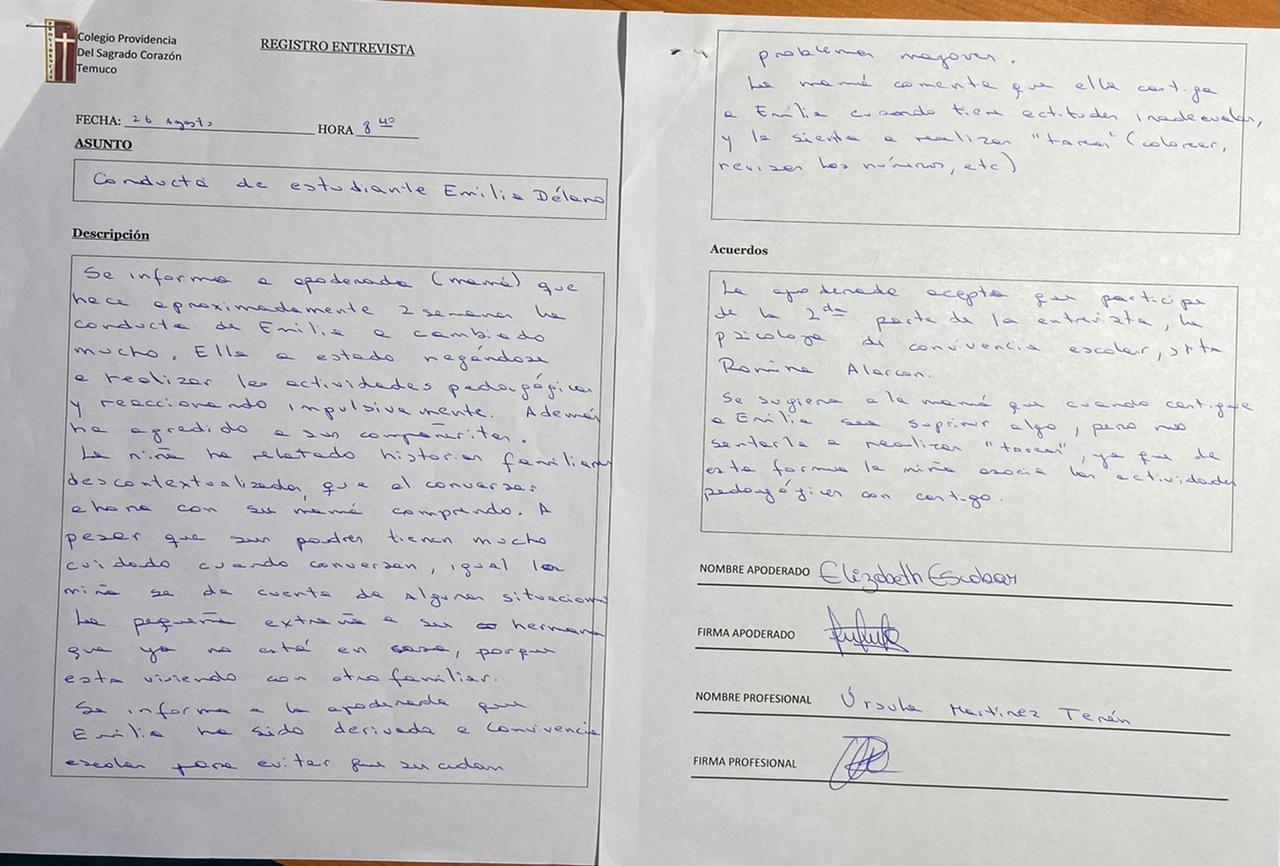 Colegio Providencia
Del Sagrado Corazón
Temuco
PROVIDENCIA
REGISTRO ENTREVISTA
FECHA: 26 Agosto HORA 8 40
ASUNTO
Conducta de estudiante Emilia Délano
Descripción
Se informa a apoderada (mamá) que
hace aproximadamente 2 semana la
conducta de Emilia a cambiado
mucho. Ella a estado negándose
a realizar las actividades pedagógicas
y reaccionando impulsivamente. Además
ha agredido a sus compañeritos.
La niña ha relatado historias familiares
descontextualizada, que al conversar
ahora con su mamá comprendo. A
pesar que sus padres tienen mucho
cuidado cuando conversan, igual la
niña se da cuenta de algunas situaciones
La pequeña extraña a su hermana
que ya no está en casa, porque
esta viviendo con otro familiar.
Se informa a la apoderada que
Emilia ha sido derivada a convivencia
escolar para evitar que sucedan
problemas mayores.
La mamá comenta que ella castiga
a Emilia cuando tiene actitudes inadecuadas,
y la sienta a realizar "tareas" (colorear,
revisar los números, etc)
Acuerdos
La apoderada acepta que participe
de la 2da parte de la entrevista, la
psicologa de convivencia escolar, srta
Romina Alarcon.
Se sugiere a la mamá que cuando castigue
a Emilia sea suprimir algo, pero no
sentarla a realizar "tareas", ya que de
esta forma la niña asocia las actividades
pedagógicas con castigo.
NOMBRE APODERADO Elizabeth Escobar
FIRMA APODERADO
NOMBRE PROFESIONAL Úrsula Martínez Terán
FIRMA PROFESIONAL